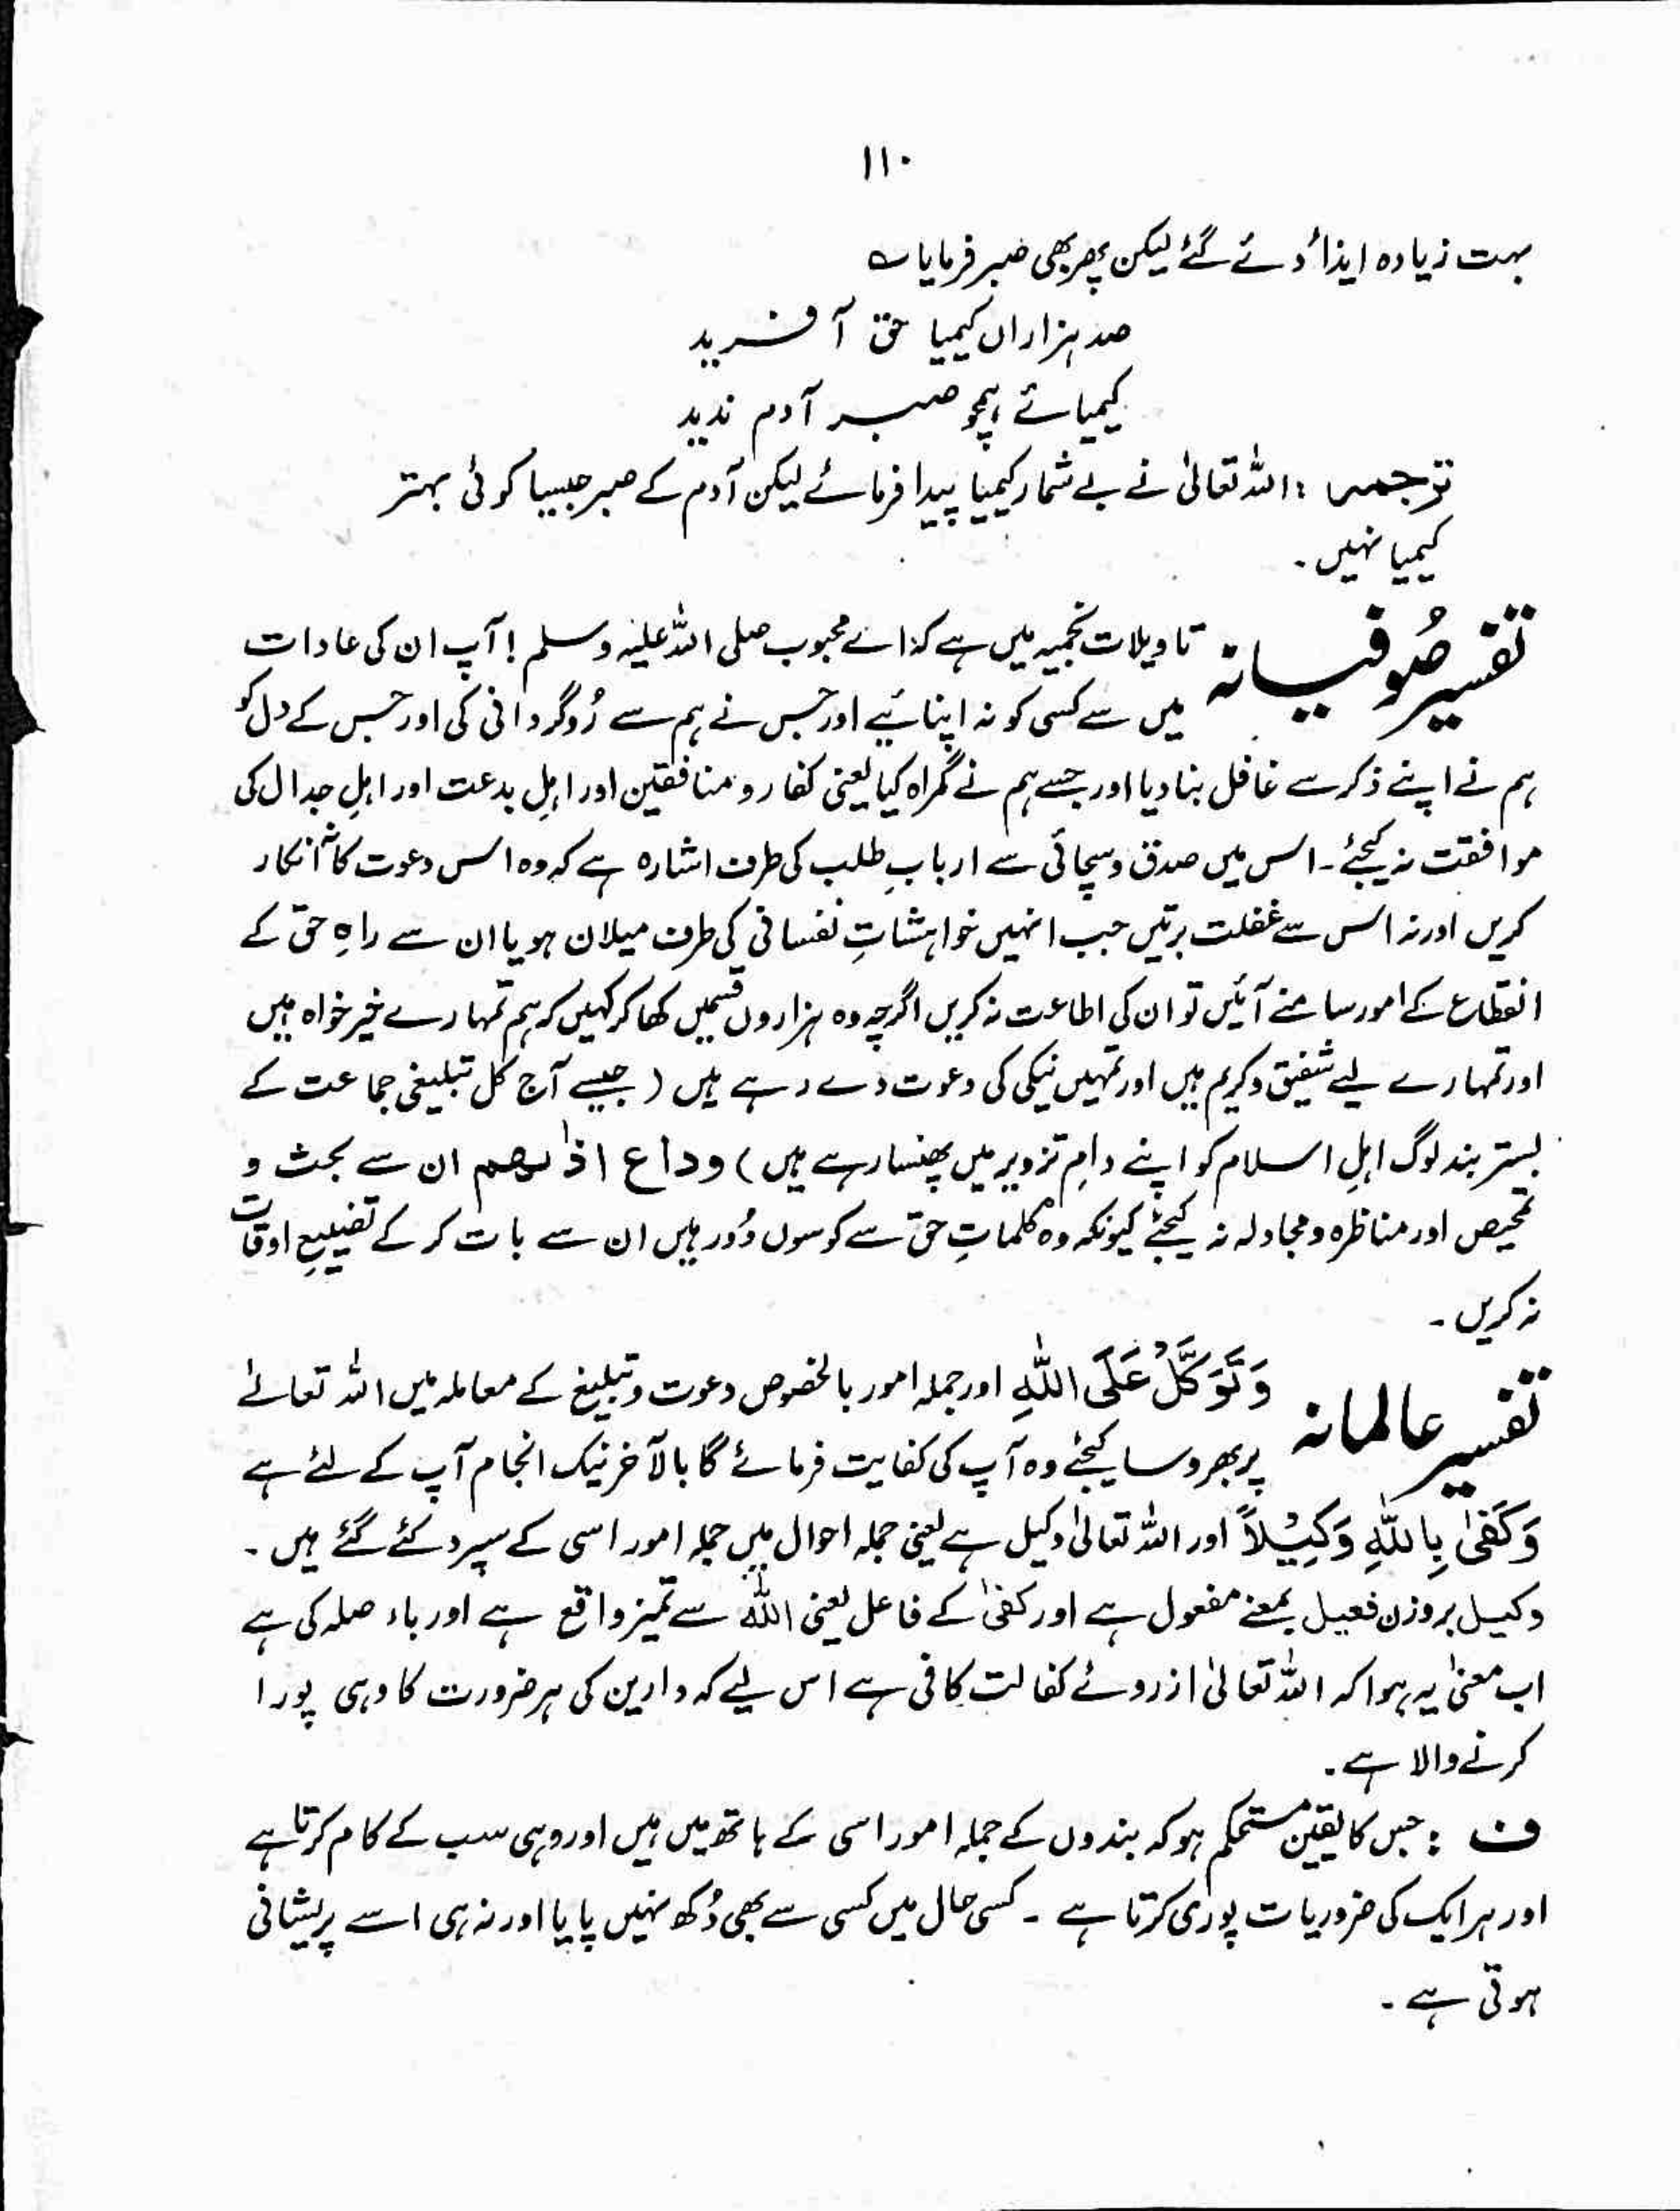 ۱۱۰
بہت زیادہ ایذائیں دئے گئے لیکن پھر بھی صبر فرمایا ؎
صد ہزاراں کیمیا حق آفرید
کیمیائے ہمچو صبر آدم ندید
ترجمہ : اللہ تعالیٰ نے بے شمار کیمیا پیدا فرمائے لیکن آدم کے صبر جیسا کوئی بہتر
کیمیا نہیں ۔
تفسیر صُوفیانہ تاویلات نجمیہ میں ہے کہ اے محبوب صلی اللہ علیہ وسلم ! آپ ان کی عادات
میں سے کسی کو نہ اپنائیے اور جس نے ہم سے رُوگردانی کی اور جس کے دل کو
ہم نے اپنے ذکر سے غافل بنا دیا اور جسے ہم نے گمراہ کیا یعنی کفار و منافقین اور اہلِ بدعت اور اہلِ جدال کی
موافقت نہ کیجئے ۔ اس میں صدق و سچائی سے اربابِ طلب کی طرف اشارہ ہے کہ وہ اس دعوت کا نہ انکار
کریں اور نہ اس سے غفلت برتیں جب انہیں خواہشاتِ نفسانی کی طرف میلان ہو یا ان سے راہِ حق کے
انقطاع کے امور سامنے آئیں تو ان کی اطاعت نہ کریں اگرچہ وہ ہزاروں قسمیں کھا کر کہیں کہ ہم تمہارے خیر خواہ ہیں
اور تمہارے لیے شفیق و کریم ہیں اور تمہیں نیکی کی دعوت دے رہے ہیں ( جیسے آج کل تبلیغی جماعت کے
بستر بند لوگ اہلِ اسلام کو اپنے دامِ تزویر میں پھنسا رہے ہیں ) ودع اذٰىهم ان سے بحث و
تمحیص اور مناظرہ و مجادلہ نہ کیجئے کیونکہ وہ کلماتِ حق سے کوسوں دُور ہیں ان سے بات کر کے تضییعِ اوقات
نہ کریں ۔
تفسیر عالمانہ وَتَوَكَّلْ عَلَى اللّٰهِ اور جملہ امور بالخصوص دعوت و تبلیغ کے معاملہ میں اللہ تعالےٰ
پر بھروسا کیجئے وہ آپ کی کفایت فرمائے گا بالآخر نیک انجام آپ کے لئے ہے
وَكَفٰى بِاللّٰهِ وَكِيْلاً اور اللہ تعالیٰ وکیل ہے یعنی جملہ احوال میں جملہ امور اسی کے سپرد کئے گئے ہیں ۔
وکیل بروزن فعیل بمعنے مفعول ہے اور کفیٰ کے فاعل یعنی اللّٰہ سے تمیز واقع ہے اور باء صلہ کی ہے
اب معنیٰ یہ ہوا کہ اللہ تعالیٰ ازروئے کفالت کافی ہے اس لیے کہ دارین کی ہر ضرورت کا وہی پورا
کرنے والا ہے ۔
ف : جس کا یقین مستحکم ہو کہ بندوں کے جملہ امور اسی کے ہاتھ میں ہیں اور وہی سب کے کام کرتا ہے
اور ہر ایک کی ضروریات پوری کرتا ہے ۔ کسی حال میں کسی سے بھی دُکھ نہیں پایا اور نہ ہی اسے پریشانی
ہوتی ہے ۔